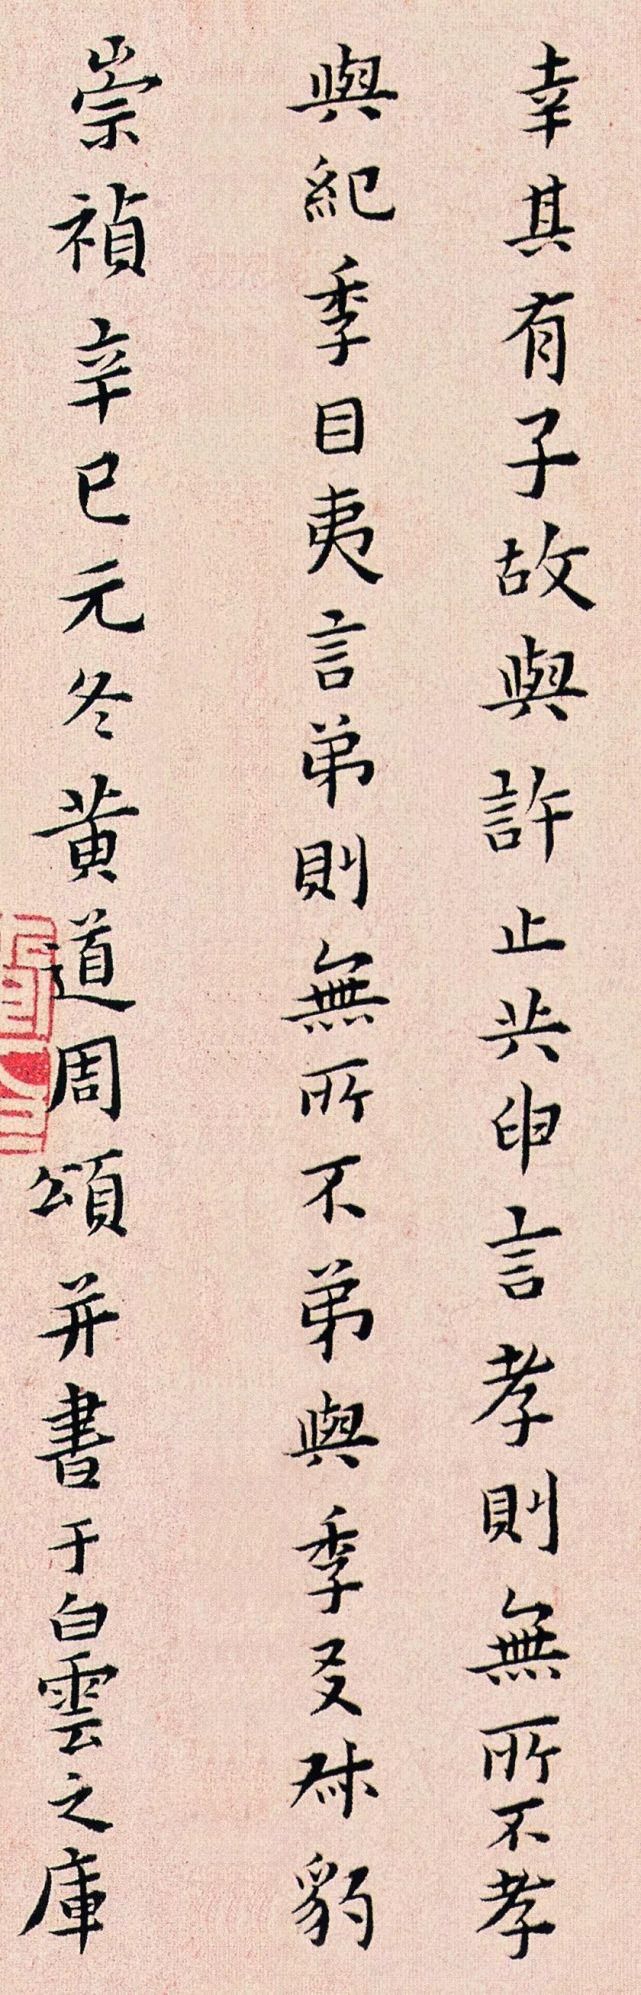 幸其有子故與許止共申言孝則無所不孝
與紀季目夷言弟則無所不弟與季友叔豹
崇禎辛巳元冬黄道周頌并書于白雲之庫